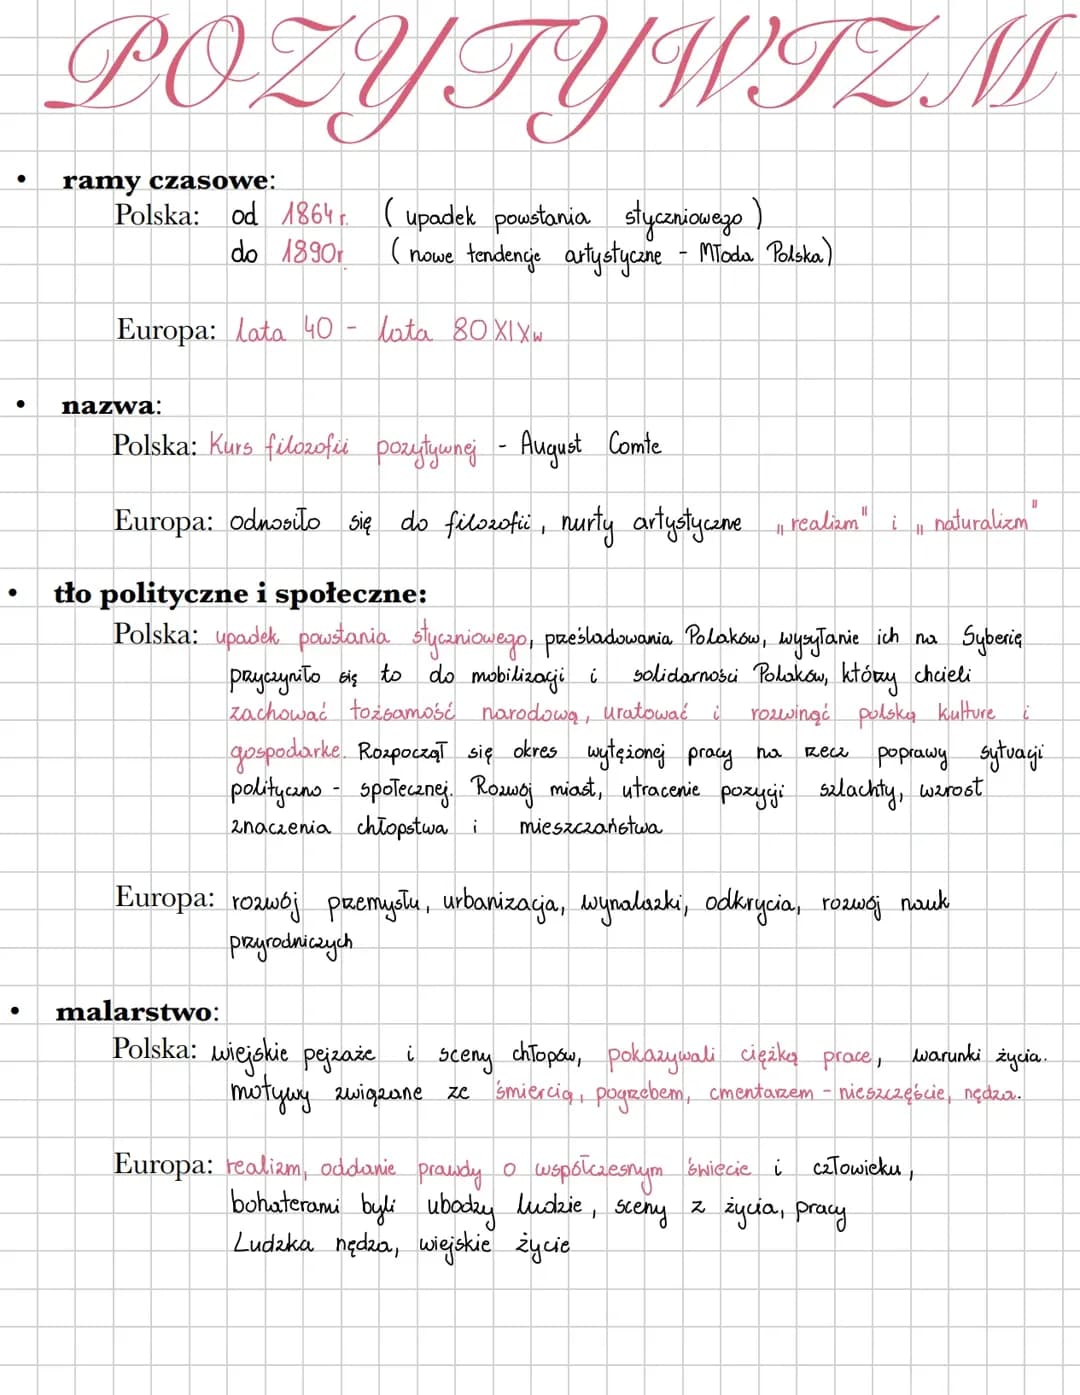 POZYTYWIZM
• ramy czasowe:
Polska: od 1864 r. ( upadek powstania styczniowego )
do 1890r ( nowe tendencje artystyczne - Młoda Polska)
Europa: lata 40 - lata 80 XIXw
• nazwa:
Polska: Kurs filozofii pozytywnej - August Comte
Europa: odnosiło się do filozofii, nurty artystyczne „realizm" i „naturalizm"
• tło polityczne i społeczne:
Polska: upadek powstania styczniowego, prześladowania Polaków, wysyłanie ich na Syberię
przyczyniło się to do mobilizacji i solidarności Polaków, którzy chcieli
zachować tożsamość narodową, uratować i rozwinąć polską kulture i
gospodarke. Rozpoczął się okres wytężonej pracy na rzecz poprawy sytuacji
polityczno - społecznej. Rozwój miast, utracenie pozycji szlachty, wzrost
znaczenia chłopstwa i mieszczaństwa
Europa: rozwój przemysłu, urbanizacja, wynalazki, odkrycia, rozwój nauk
przyrodniczych
• malarstwo:
Polska: wiejskie pejzaże i sceny chłopów, pokazywali ciężką prace, warunki życia.
motywy związane ze śmiercią, pogrzebem, cmentarzem - nieszczęście, nędza.
Europa: realizm, oddanie prawdy o współczesnym świecie i człowieku,
bohaterami byli ubodzy ludzie, sceny z życia, pracy
Ludzka nędza, wiejskie życie